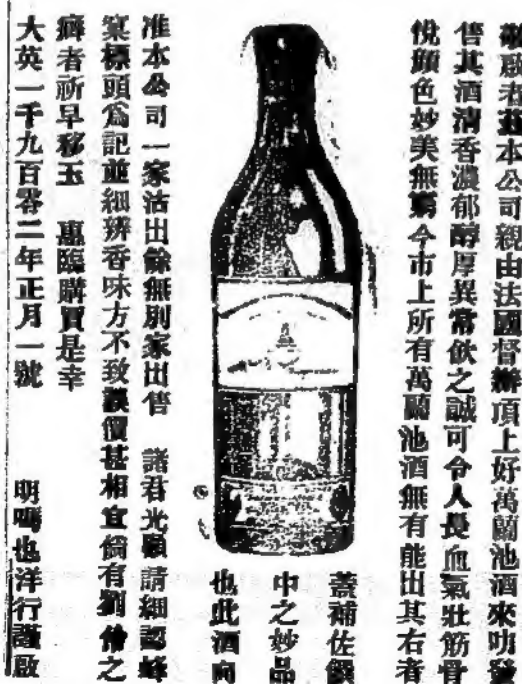 敬啟者茲本公司親由法國督辦頂上好萬蘭池酒來叻發
售其酒清香濃郁醇厚異常飲之誠可令人長血氣壯筋骨
悅顏色妙美無窮今市上所有萬蘭池酒無有能出其右者
蓋補佐饌
中之妙品
也此酒向
准本公司一家沽出餘無別家出售 諸君光顧請細認蜂
窠標頭爲記並細辨香味方不致誤價甚相宜倘有劉伶之
癖者祈早移玉 惠臨購買是幸
大英一千九百零二年正月一號 明嗎也洋行謹啟